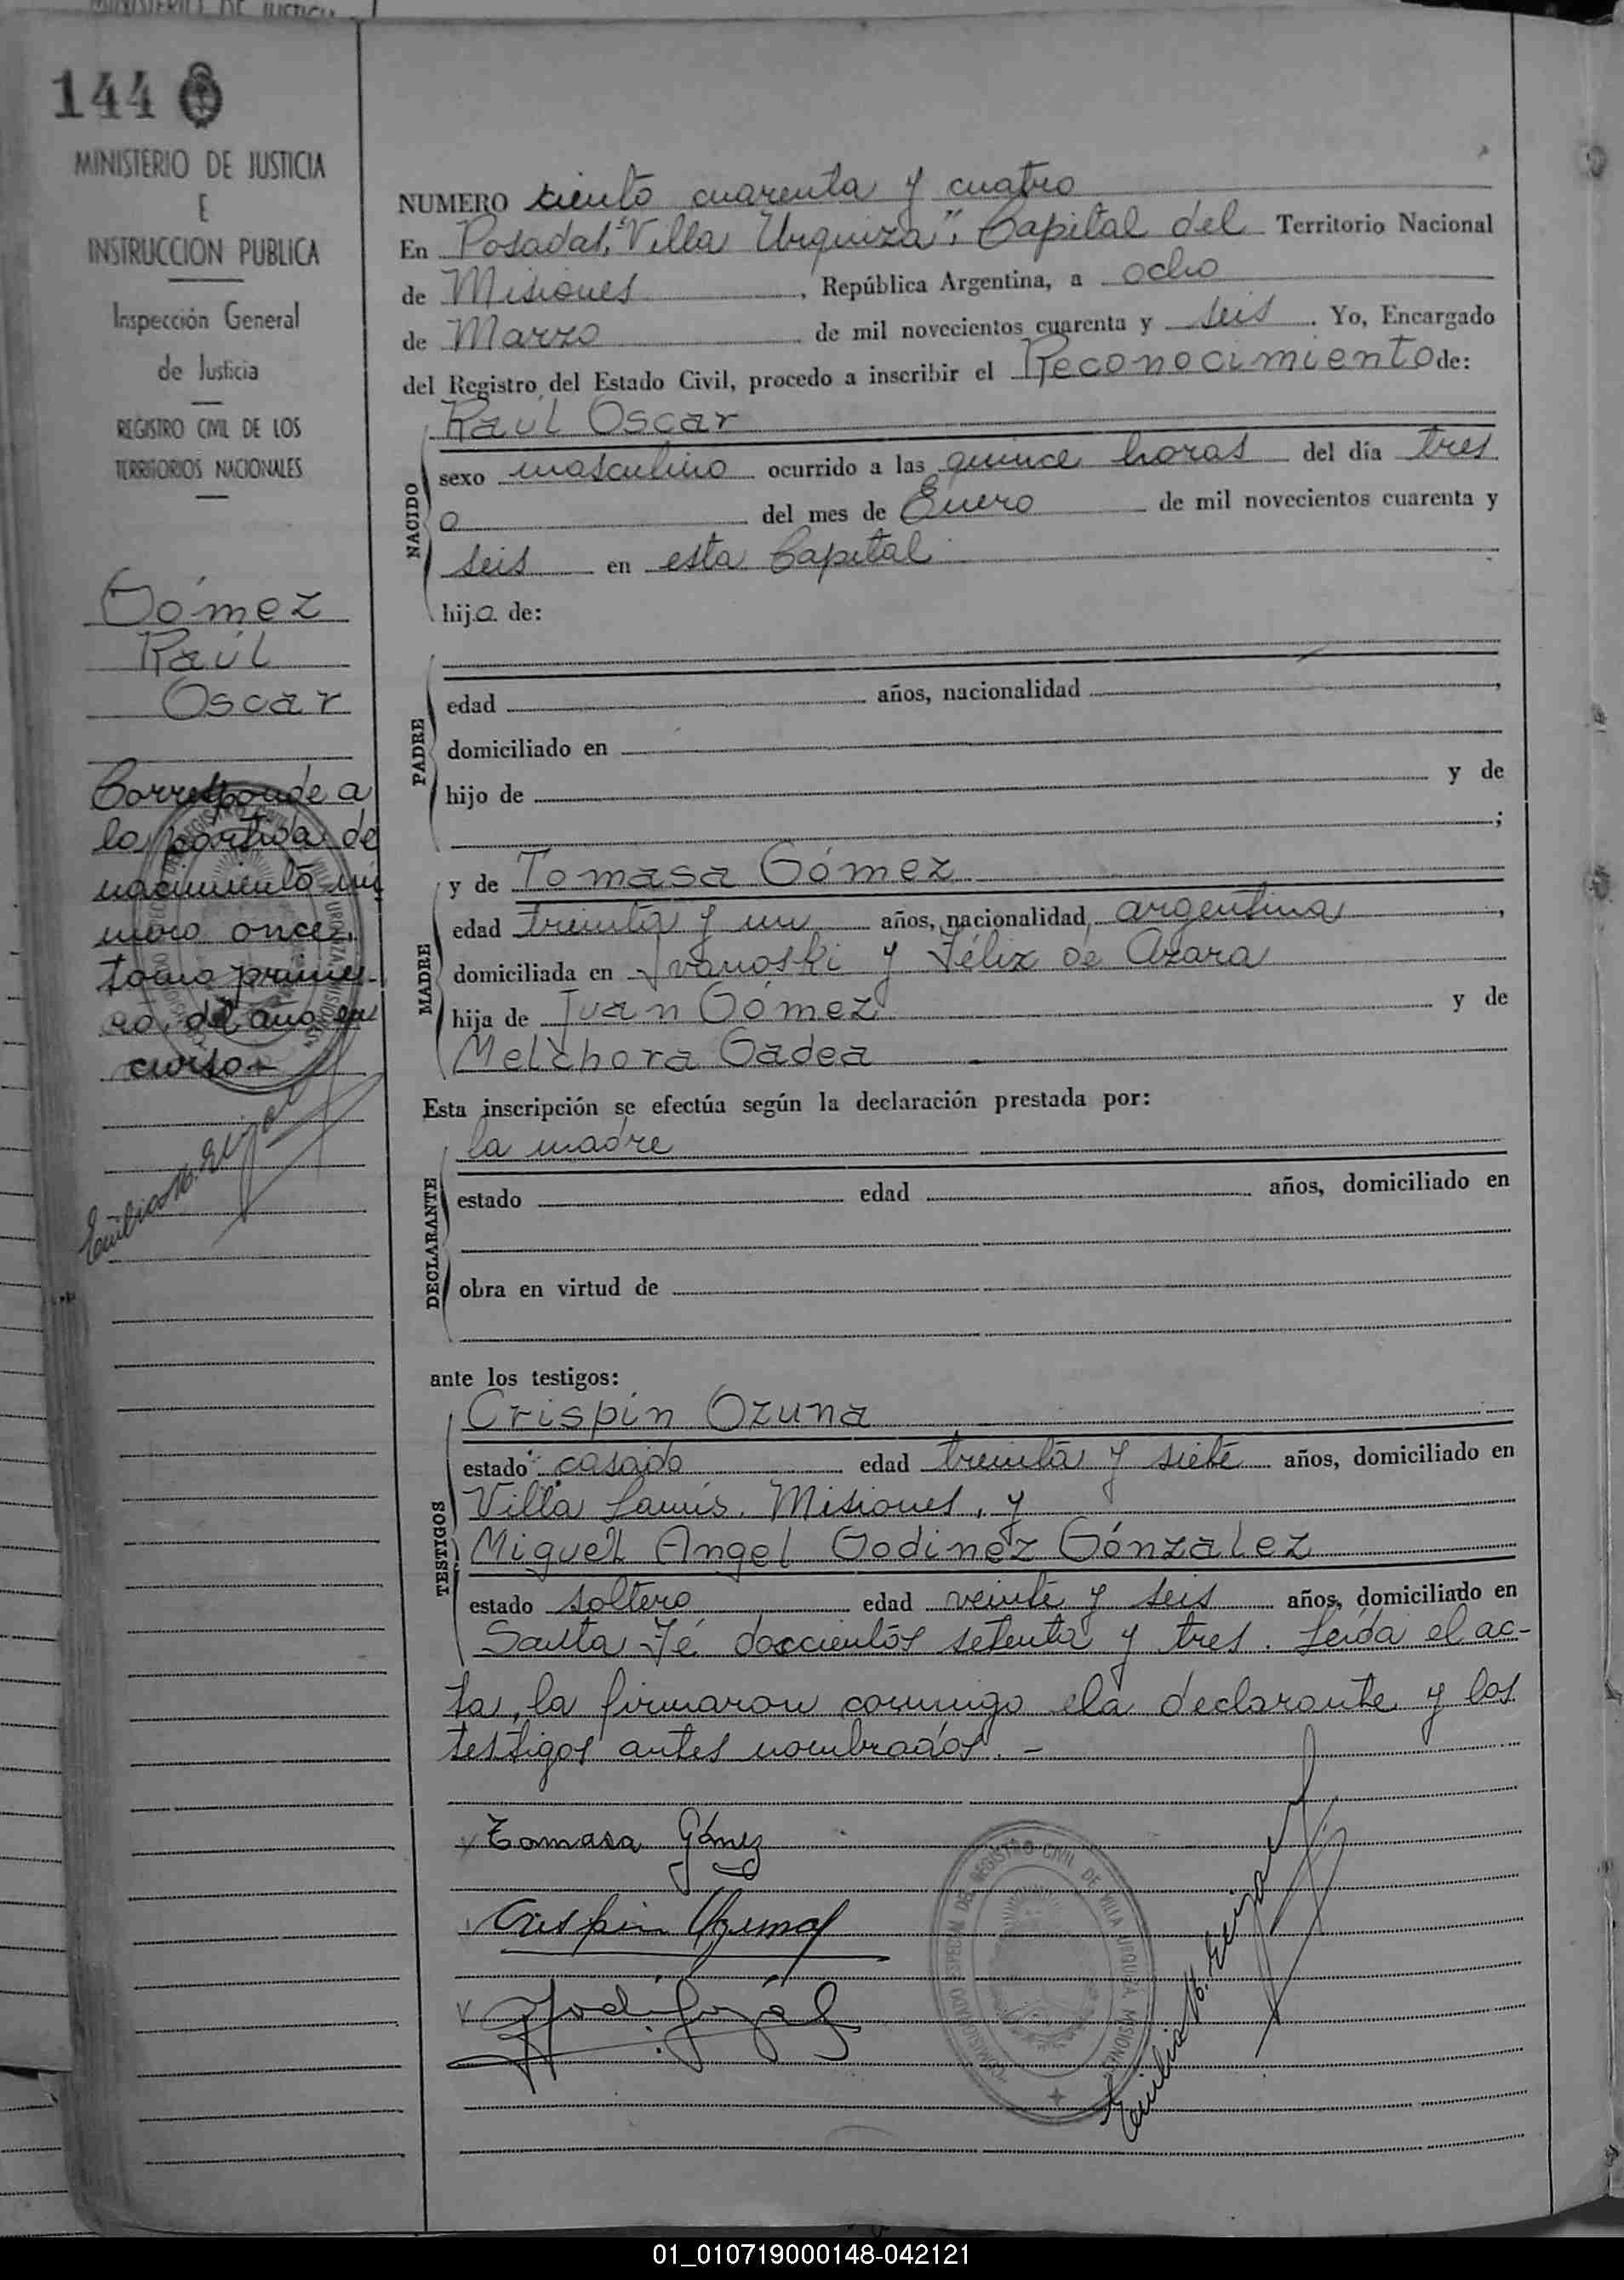 144
MINISTERIO DE JUSTICIA
E
INSTRUCCION PUBLICA
Inspección General
de Justicia
REGISTRO CIVIL DE LOS
TERRITORIOS NACIONALES
Gómez
Raúl
Oscar
Corresponde a
la partida de
nacimiento nú
mero once,
tomo prime-
ro, del año en
curso.-
NUMERO ciento cuarenta y cuatro
En Posadas, "Villa Urquiza", Capital del Territorio Nacional
de Misiones, República Argentina, a ocho
de Marzo de mil novecientos cuarenta y seis. Yo, Encargado
del Registro del Estado Civil, procedo a inscribir el Reconocimiento de:
NACIDO
Raúl Oscar
sexo masculino ocurrido a las quince horas del día tres
o del mes de Enero de mil novecientos cuarenta y
seis en esta Capital
hijo de:
PADRE
edad años, nacionalidad ,
domiciliado en
hijo de y de
;
MADRE
y de Tomasa Gómez
edad treinta y un años, nacionalidad, argentina,
domiciliada en Ivanoski y Félix de Azara
hija de Juan Gómez y de
Melchora Gadea
Esta inscripción se efectúa según la declaración prestada por:
DECLARANTE
la madre
estado edad años, domiciliado en
obra en virtud de
ante los testigos:
TESTIGOS
Crispín Ozuna
estado casado edad treinta y siete años, domiciliado en
Villa Lanús, Misiones, y
Miguel Angel Godinez Gónzalez
estado soltero edad veinte y seis años, domiciliado en
Santa Fé doscientos setenta y tres. Leída el ac-
ta, la firmaron conmigo ela declarante y los
testigos antes nombrados. -
Tomasa Gómez
Crispin Ozuna
REGISTRO CIVIL DE VILLA URQUIZA MISIONES
01_010719000148-042121